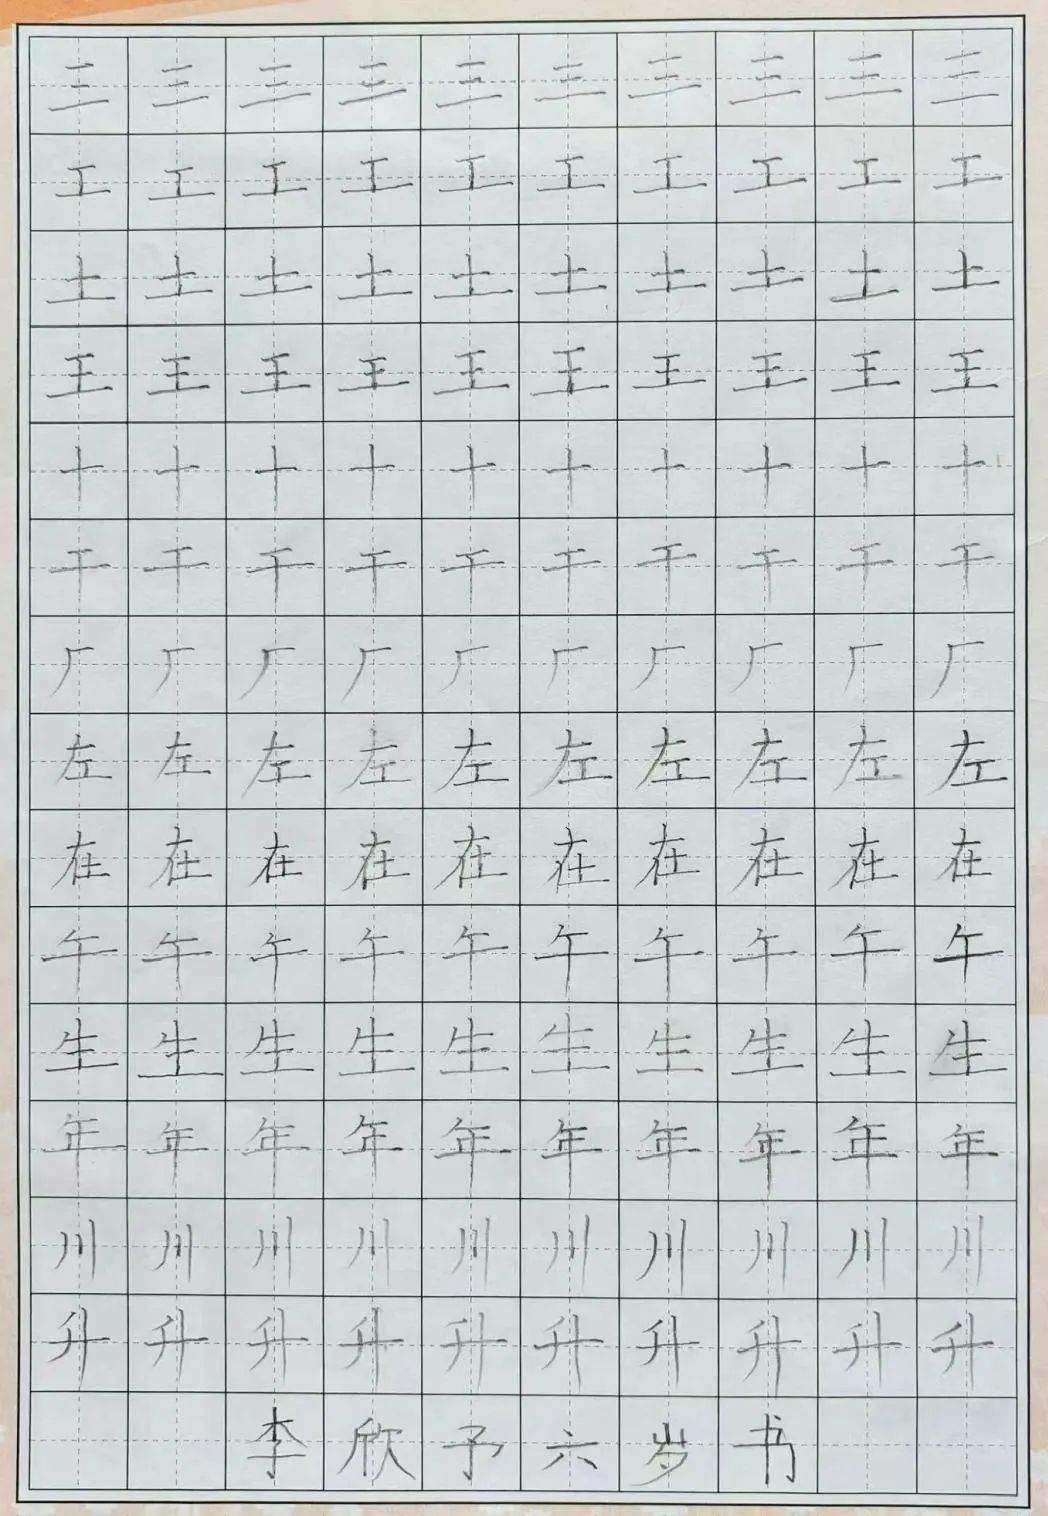 三三三三三三三三三三
工工工工工工工工工工
土土土土土土土土土土
王王王王王王王王王王
十十十十十十十十十十
干干干干干干干干干干
厂厂厂厂厂厂厂厂厂厂
左左左左左左左左左左
在在在在在在在在在在
午午午午午午午午午午
生生生生生生生生生生
年年年年年年年年年年
川川川川川川川川川川
升升升升升升升升升升
李欣予六岁书